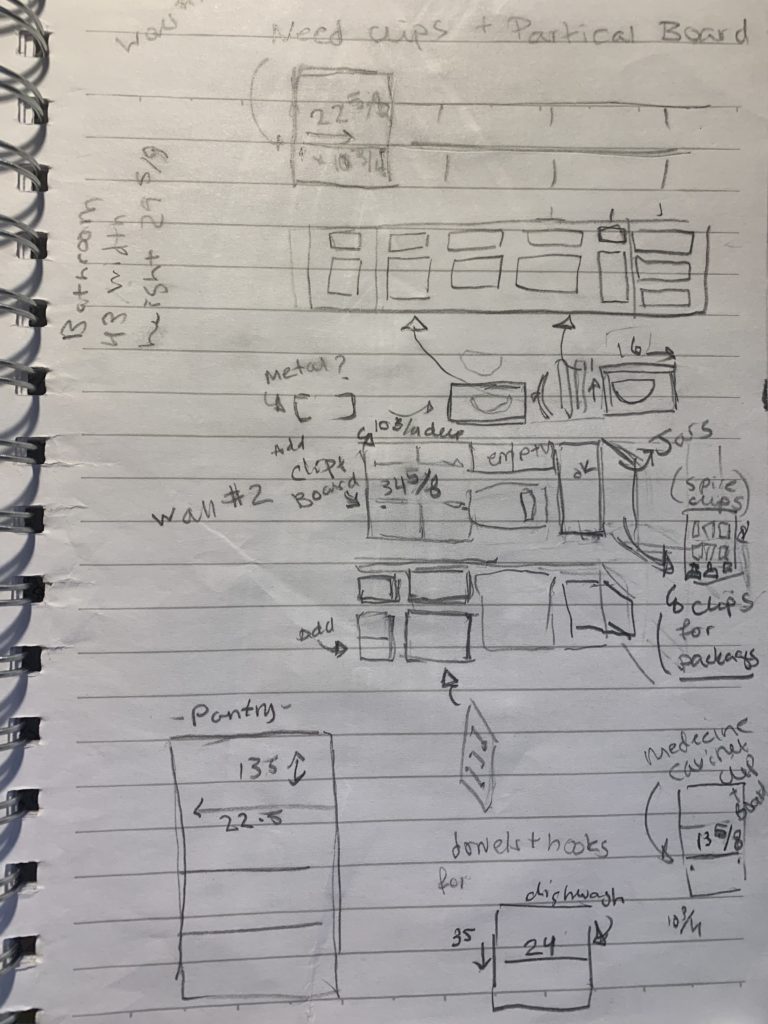 Need clips + Partical Board
22 5/8
+ 10 3/4
Bathroom
43 width
height 29 5/8
16
metal?
4
10 3/4 deep
Add
clips
Board
34 5/8
empty
ok
Jars
(Spice
clips)
Wall #2
& clips
for
packages
Add
-Pantry-
135
22.5
Medicine
cavinet
clip
+
Board
13 5/8
10 3/4
dowels + hooks
for
dishwash
35
24